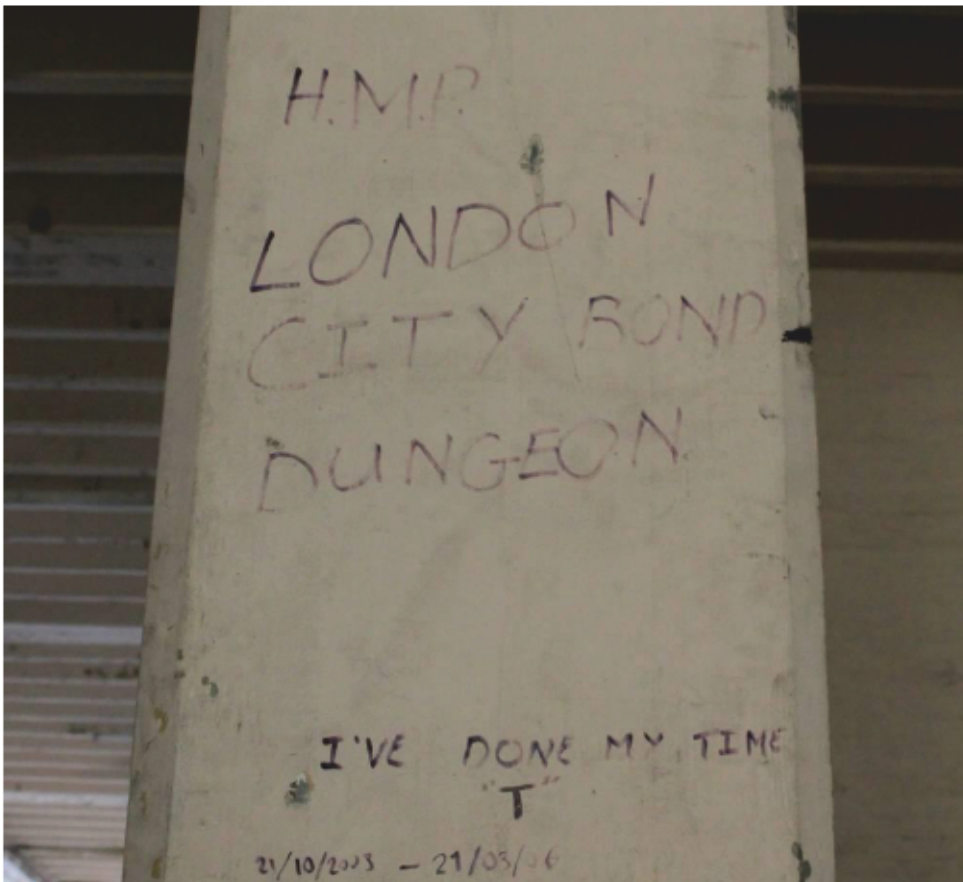 H.M.P.
LONDON
CITY BOND
DUNGEON.
I'VE DONE MY TIME
"T"
21/10/2003 – 21/03/06